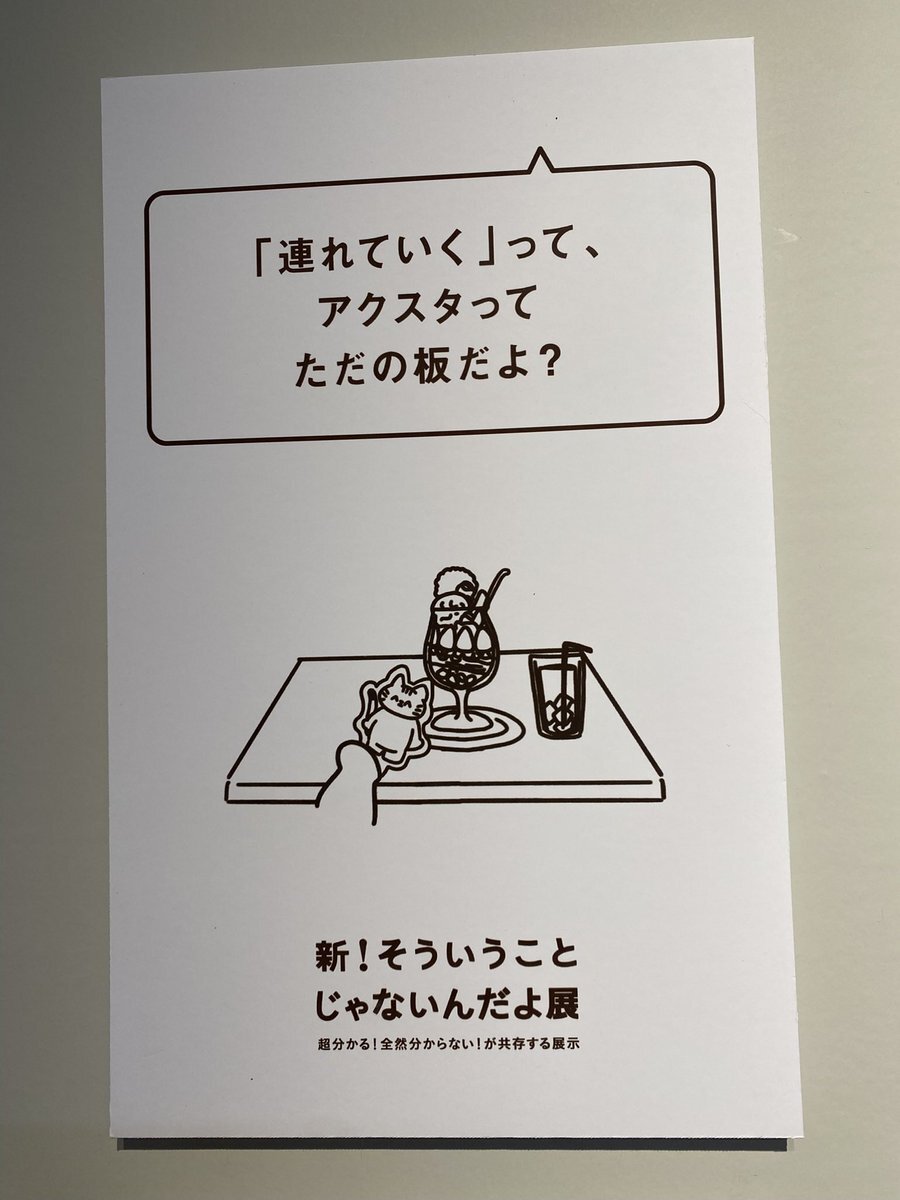 「連れていく」って、
アクスタって
ただの板だよ？
新！そういうこと
じゃないんだよ展
超分かる！全然分からない！が共存する展示